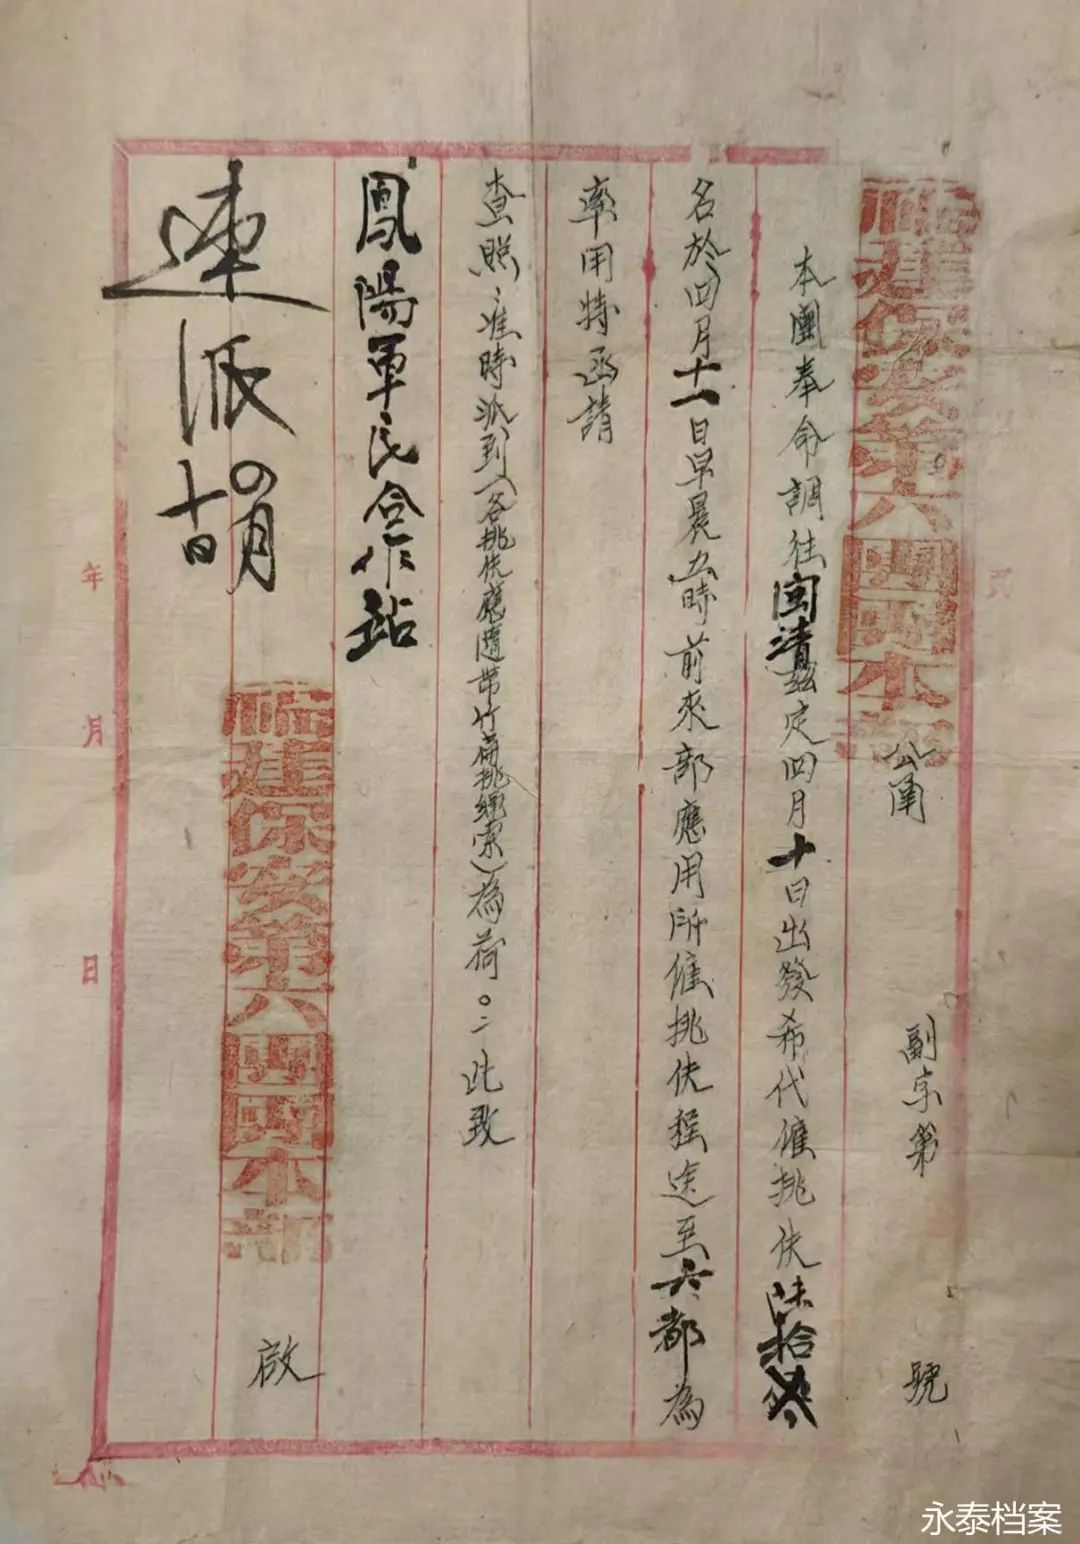 福建保安第六團團本部 公函
副字第 號
本團奉命調往閩清茲定四月十日出發希代僱挑伕陸拾
名於四月十一日早晨五時前來部應用所僱挑伕程途至六都為
率用特函請
查照準時派到（各挑伕應隨帶竹扁挑繩索）為荷。此致
鳳陽軍民合作站
福建保安第六團團本部 啟
速派
四月
十日
年 月 日
永泰档案